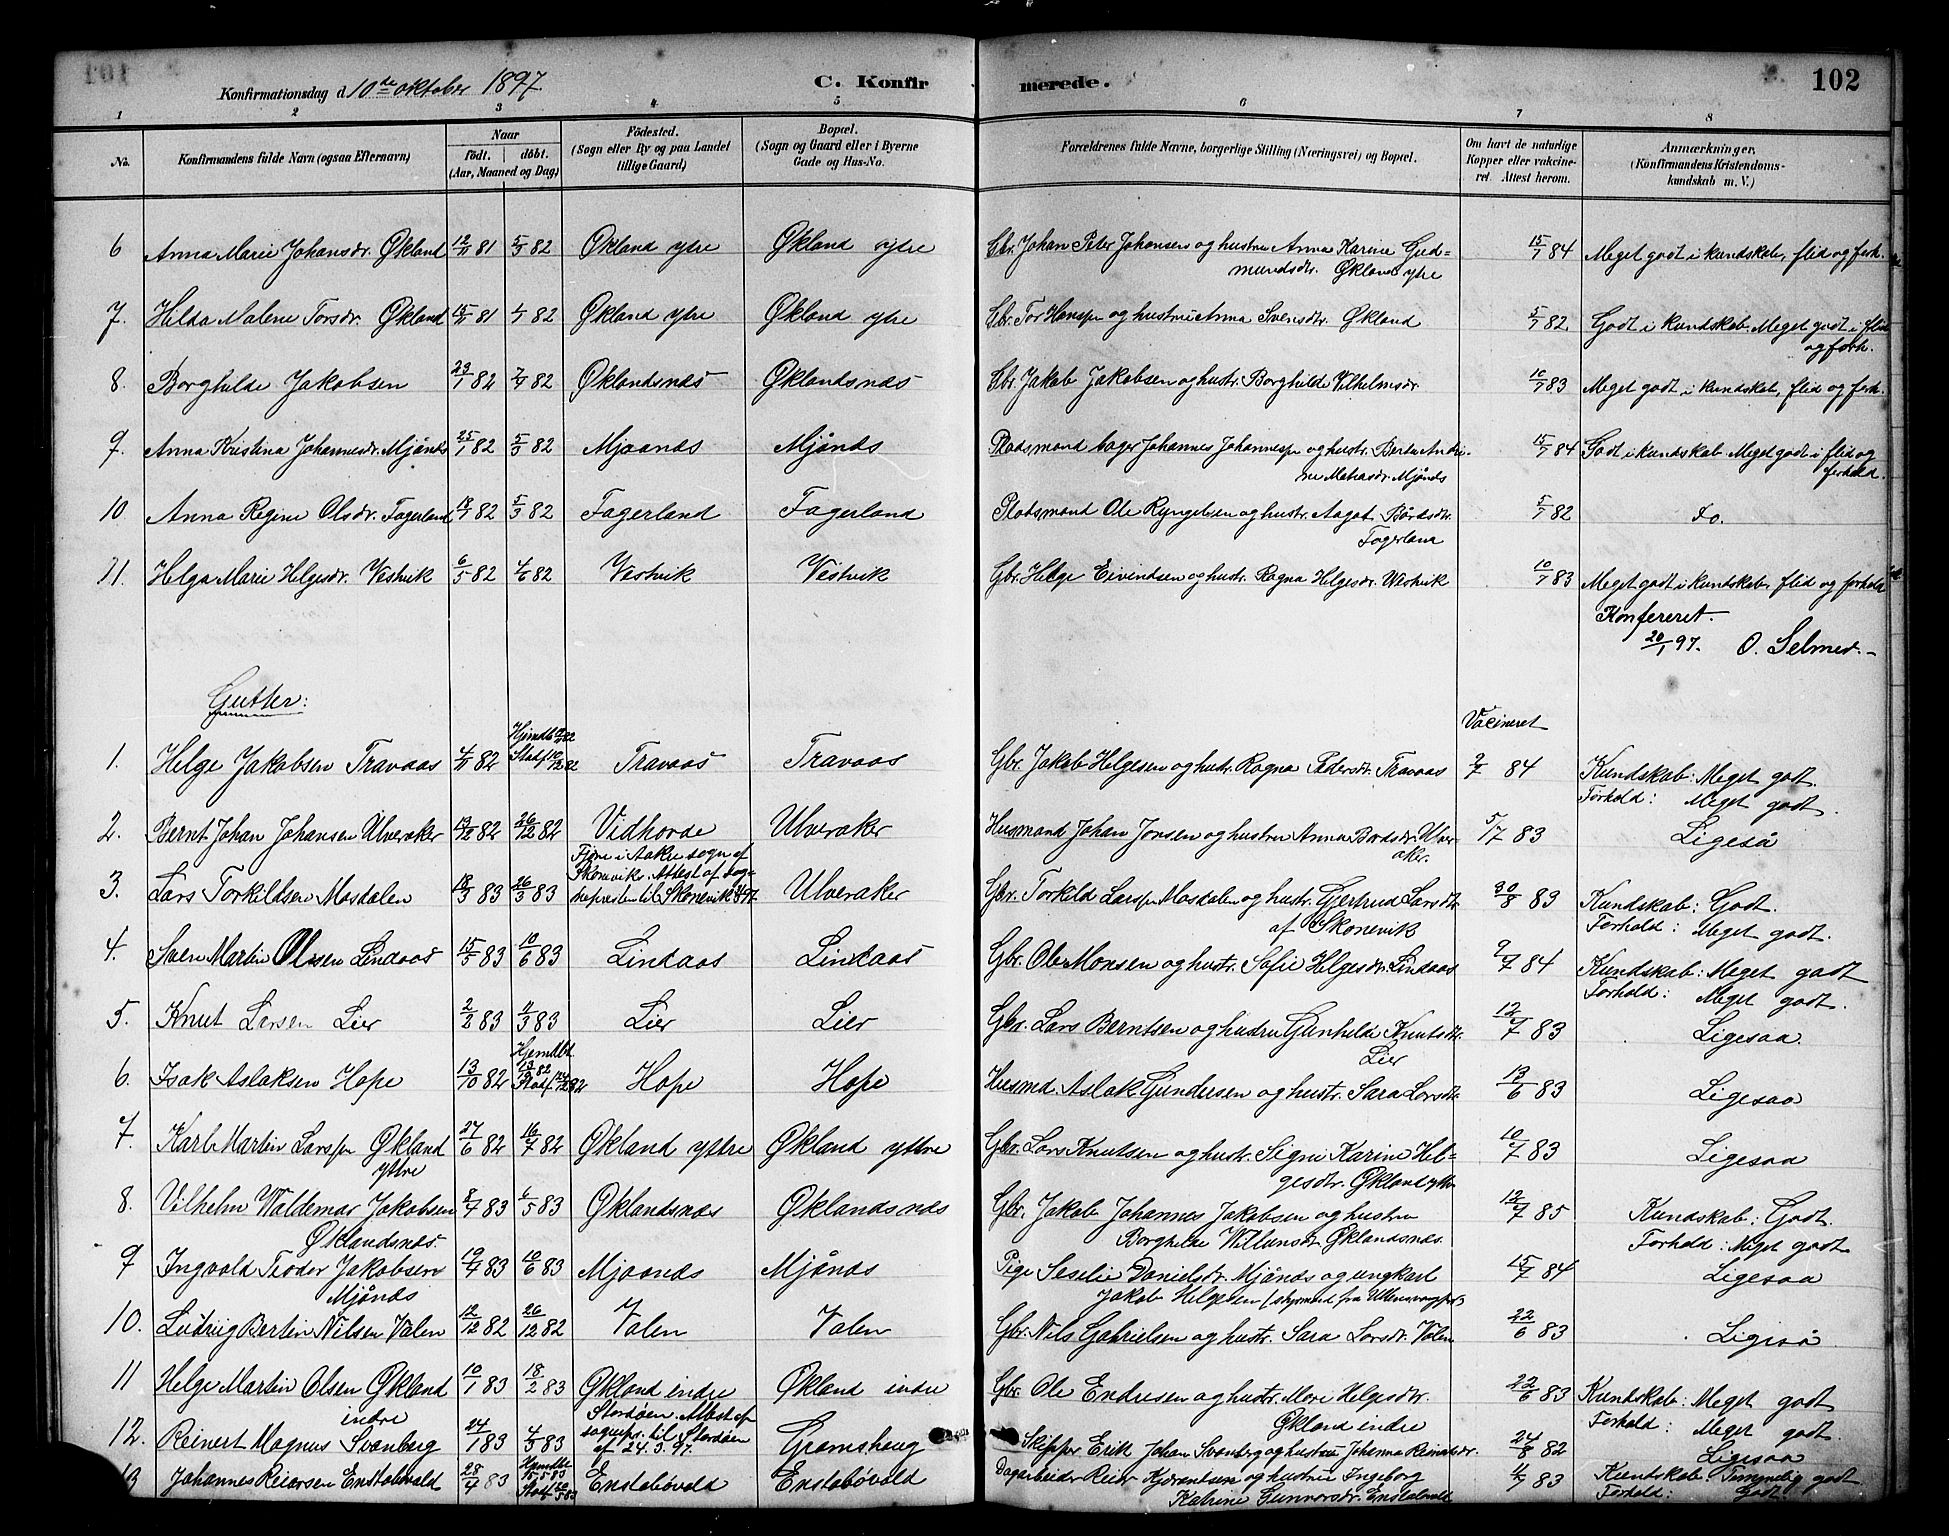 Konfirmationsdag d. 10de oktober 1897.
C. Konfirmerede.
102
1 2 3 4 5 6 7 8
No.
Konfirmandens fulde Navn (ogsaa Efternavn)
Naar
födt. döbt.
(Aar, Maaned og Dag)
Födested.
(Sogn eller By og paa Landet
tillige Gaard)
Bopæl.
(Sogn og Gaard eller i Byerne
Gade og Hus-No.
Forældrenes fulde Navne, borgerlige Stilling (Næringsvei) og Bopæl.
Om havt de naturlige
Kopper eller vakcine-
ret. Attest herom.
Anmærkninger,
(Konfirmandens Kristendoms-
kundskab m. V.)
6 Anna Marie Johansdr. Økland 12/11 81 5/3 82 Økland ytre Økland ytre Gbr. Johan Peter Johansen og hustru Anna Karine Gud- 15/7 84 Meget godt i kundskab, flid og forh.
mundsdr. Økland ytre
7. Hilda Malene Torsdr. Økland 15/11 81 82 Økland ytre Økland ytre Gbr. Tor Hansen og hustru Anna Svensdtr. Økland 5/7 82 Godt i kundskab. Meget godt i flid
og forh.
8. Borghilde Jakobsen 23/1 82 82 Øklandsnæs Øklandsnæs Gbr. Jakob Jakobsen og hustr. Borghilde Vilhelmsdr 10/7 83 Meget godt i kundskab, flid og forh.
9. Anna Kristina Johannesdr. Mjånds 25/1 82 5/3 82 Mjaands Mjånds Pladsmand bager Johannes Johannessen og hustr. Berta Andri- 15/7 84 Godt i kundskab. Meget godt i flid og
ne Matiasdr. Mjånds forhold.
10 Anna Regine Olsdr. Fagerland 18/1 82 5/3 82 Fagerland Fagerland Pladsmand Ole Ryngelsen og hustr. Aagot Bårdsdr. 5/7 82 Do.
Fagerland
11. Helga Marie Helgesdr. Vestvik 6/5 82 4/6 82 Vestvik Vestvik Gbr. Helge Eivindsen og hustr. Ragna Helgesdr. Westvik 10/7 83 Meget godt i kundskab, flid og forhold
Konfereret.
20/1 97. O. Selmer.-
Gutter:
Vacineret
1. Helge Jakobsen Travaas 4/11 82 Hjemdbt Stadf. Travaas Travaas Gbr. Jakob Helgesen og hustr. Ragna Pedersdr. Travaas 2/7 84 Kundskab: Meget godt.
Forhold: Meget godt.
2. Bernt Johan Johansen Ulveraker 13/12 82 26/12 82 Vidhorde Ulveraker Husmand Johan Jonsen og hustru Anna Bordsdr. Ulver- 5/7 83 Ligeså
aker.
3. Lars Torkildsen Mosdalen 18/3 83 26/3 83 Fjære i Aakre sogn af
Skonevik. Attest af sog-
nepresten til Skonevik Ulveraker Gbr. Torkild Larssen Mosdalen og hustr. Gjertrud Larsdtr 30/8 83 Kundskab: Godt.
af Skonevik Forhold: Meget godt.
4. Sven Martin Olssen Lindaas 15/5 83 10/6 83 Lindaas Lindaas Gbr. Ole Monsen og hustr. Sofie Helgesdr. Lindaas 2/7 84 Kundskab: Meget godt
Forhold: Meget godt.
5. Knut Larsen Lier 2/2 83 4/3 83 Lier Lier Gbr. Lars Berntsen og hustru Gunhilde Knutsdtr. 12/7 83 Ligesaa.
Lier
6. Isak Aslaksen Hope 13/10 82 Hjemdbt. Stadf. Hope Hope Husmd. Aslak Gundersen og hustr. Sara Larsdtr 13/6 83 Ligesaa
7. Karl Martin Larssen Økland 27/6 82 16/7 82 Økland yttre Økland yttre Gbr. Lars Knutsen og hustr. Signe Karine Hel- 10/7 83 Ligesaa
yttre gesdtr. Økland yttre
8. Vilhelm Waldemar Jakobsen 8/4 83 6/5 83 Øklandsnæs Øklandsnæs Gbr. Jakob Johannes Jakobsen og hustru 12/7 85 Kundskab: Godt.
Øklandsnæs. Borghilde Willumsdr Øklandsnæs. Forhold: Meget godt.
9 Ingvald Teodor Jakobsen 19/4 83 10/6 83 Mjaands Mjånds Pige Seselie Danielsdr. Mjånds og ungkarl 15/7 84 Ligesaa
Mjånds Jakob Helgesen (
10. Ludvig Bertin Nilsen Valen 12/12 82 26/12 82 Valen Valen Gbr. Nils Gabrielsen og hustr. Sara Larsdr. Valen 22/6 83 Ligeså
11 Helge Martin Olsen Økland 10/1 83 18/2 83 Økland indre Økland indre Gbr. Ole Endresen og hustr. Mari Helgesdtr. 22/6 83 Kundskab: Meget godt
indre Økland indre Forhold: Meget godt.
12. Reinert Magnus Svanberg 24/1 83 4/3 83 Stordøen. Attest af
sognepr. til Stordøen
af 24.3.97. Gramshaug Skipper Erik Johan Svanberg og hustru Johanna Reinertsdr. 24/8 82 Ligesaa
13 Johannes Reiersen Enstabøvold 28/4 83 Hjemdbt 15-5 83 Stadf. 20/5 83 Enstabövold Enstabövold Dagarbeider Reier og hustru Ingeborg 83 Kundskab. Temmelig godt
Katrine Gunnarsdr. Enstabövold Forhold: Godt.